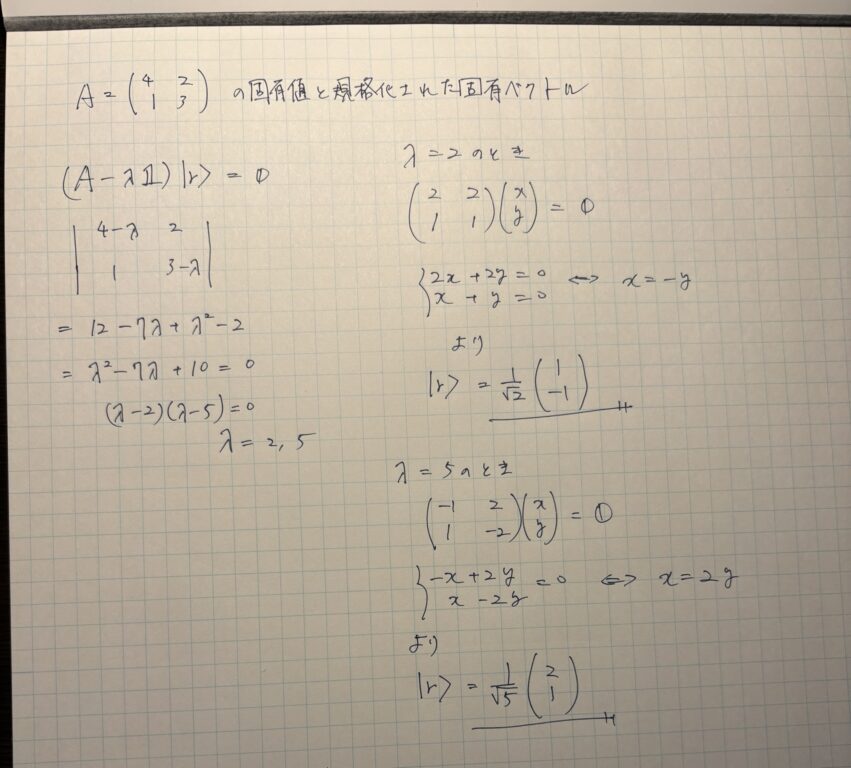 A = (4 2 / 1 3) の固有値と規格化された固有ベクトル
(A − λ𝟙)|r> = 𝟘
|4−λ 2 / 1 3−λ|
= 12 − 7λ + λ² − 2
= λ² − 7λ + 10 = 0
(λ−2)(λ−5) = 0
λ = 2, 5
λ = 2 のとき
(2 2 / 1 1)(x / y) = 𝟘
{2x + 2y = 0 / x + y = 0 ⇔ x = −y
より
|r> = 1/√2 (1 / −1)
λ = 5 のとき
(−1 2 / 1 −2)(x / y) = 𝟘
{−x + 2y / x − 2y = 0 ⇔ x = 2y
より
|r> = 1/√5 (2 / 1)